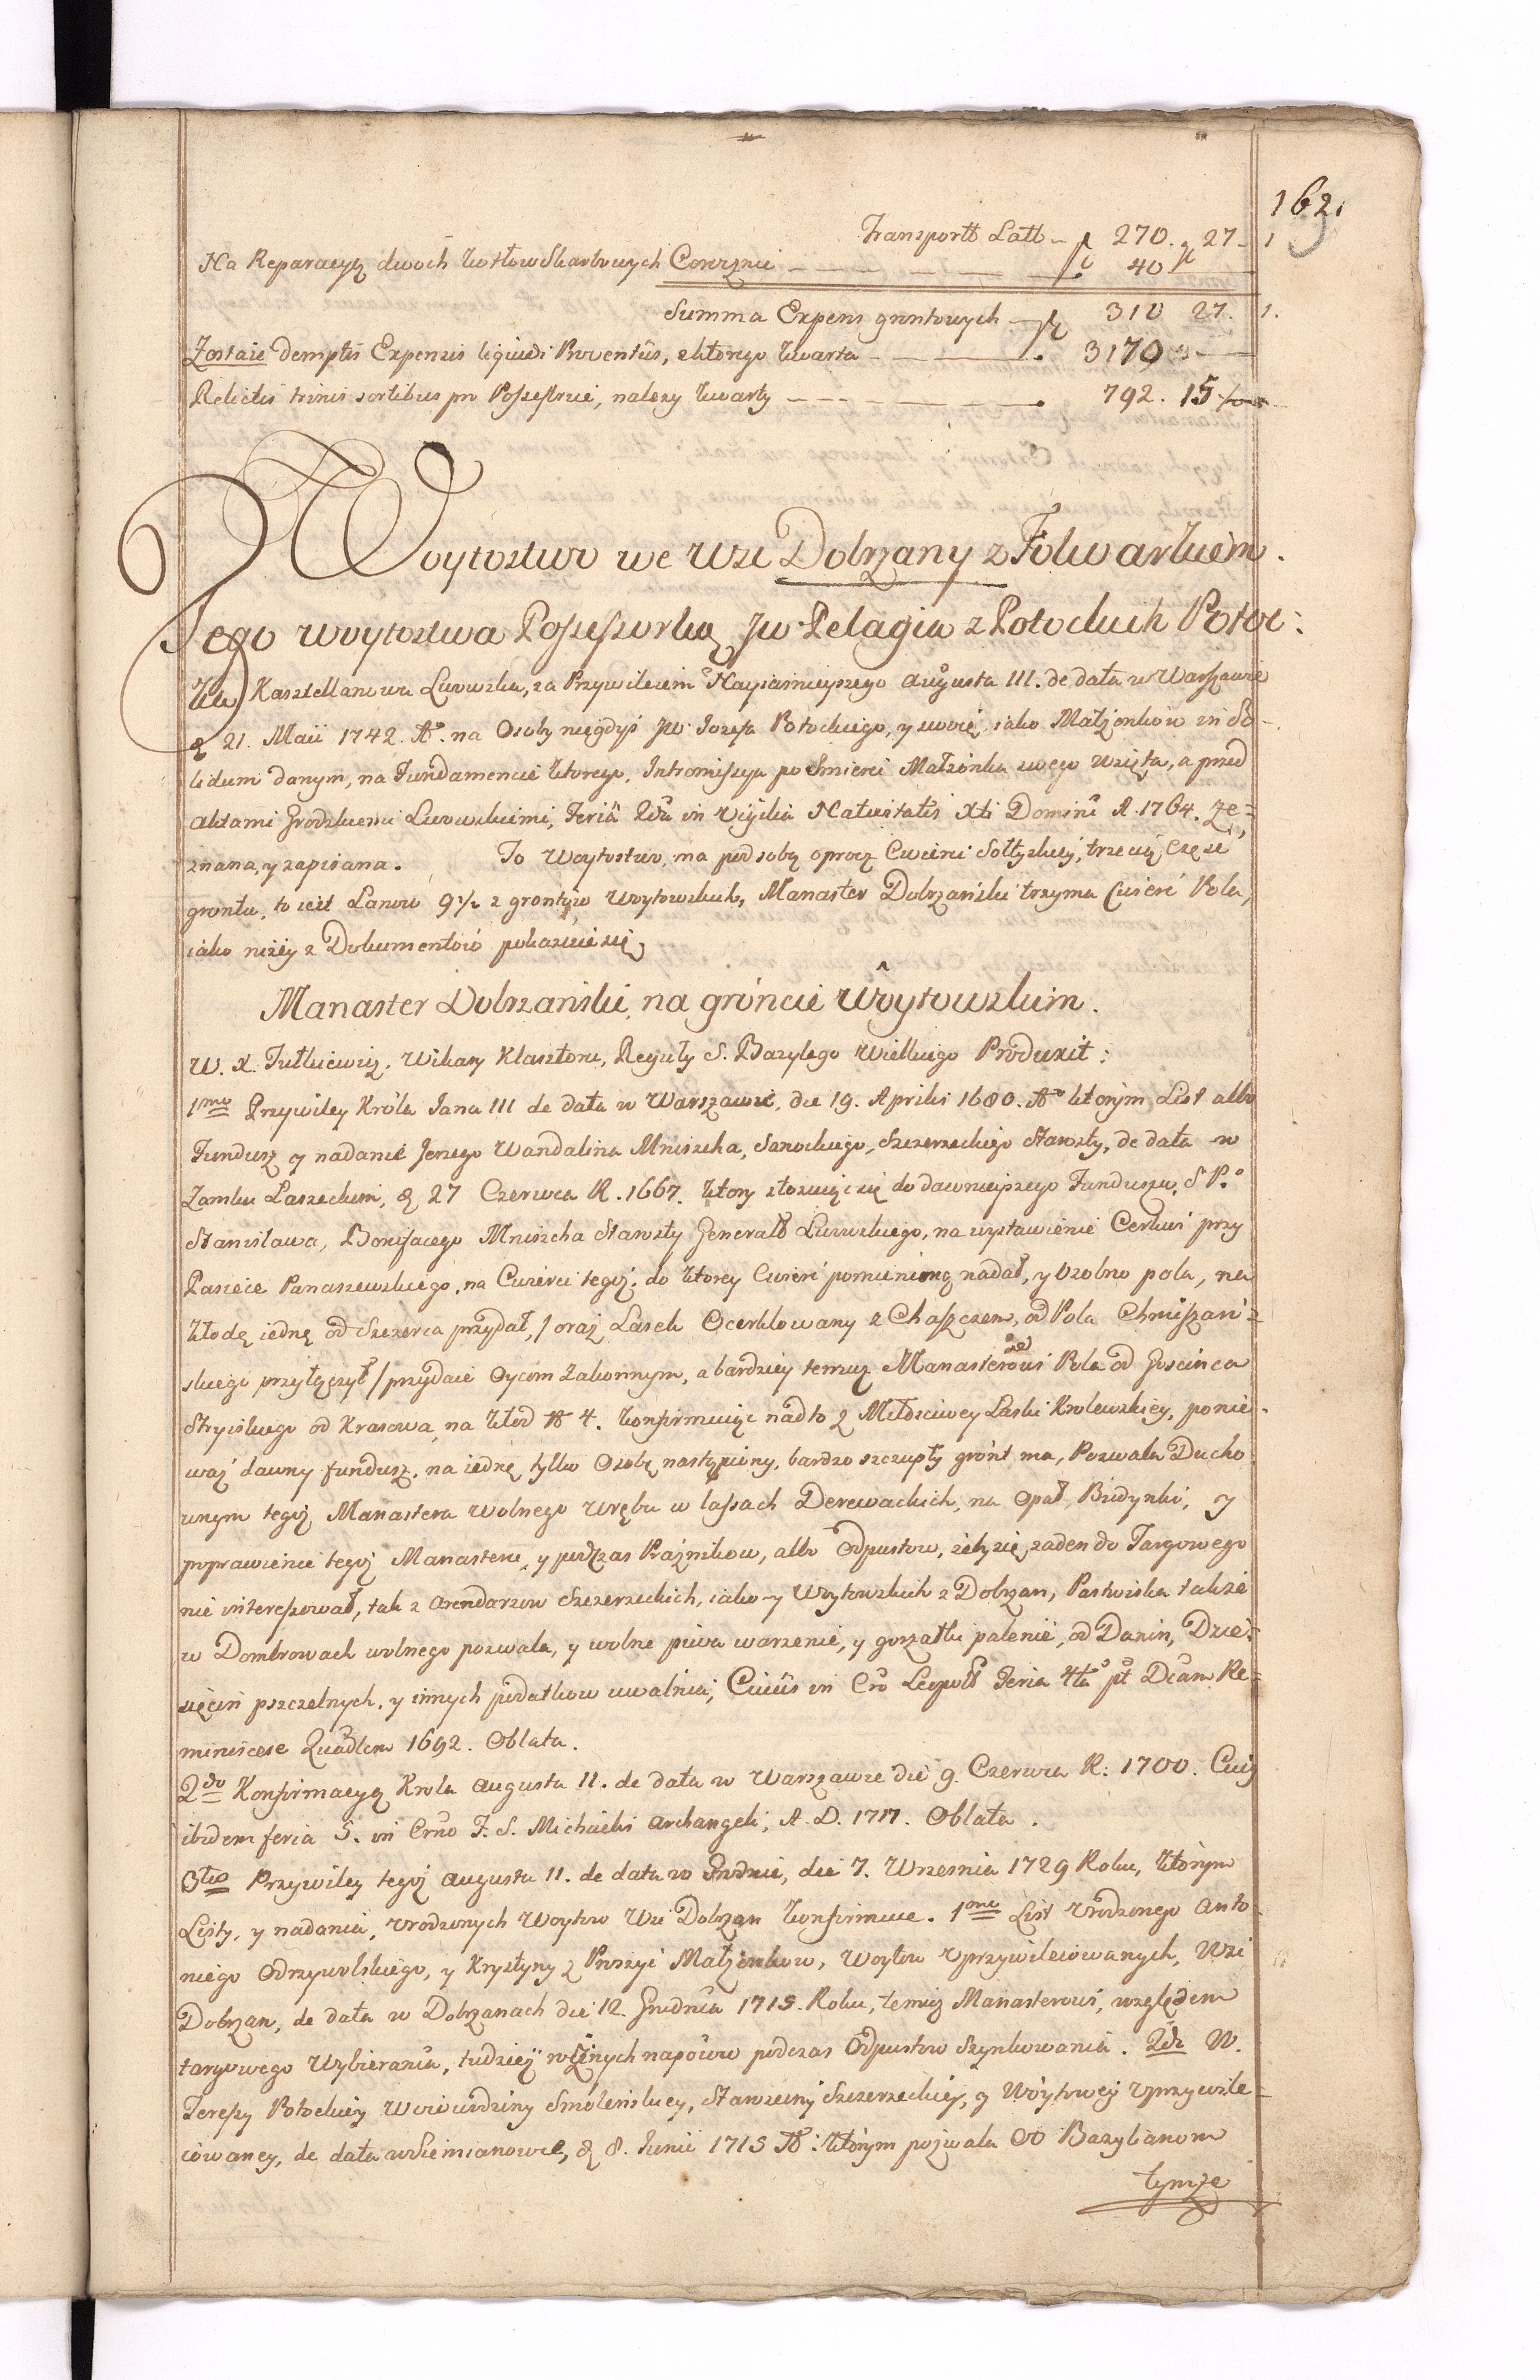 162.
Transportt Latt – fl 270. gr 27 – 1
Na Reparacyą dwoch kotłow Skarbowych Corocznie — — — — 40
Summa Expens gruntowych — fl 310 27. 1.
Zostaie demptis Expensis liquidi Proventûs, z ktorego kwarta — — — 3170
Relictis trinis sortibus pro Possessore, nalezy kwarty — — — — 792. 15
Woytostwo we Wsi Dobrzany z Folwarkiem.
Tego woytostwa Possessorką Jw Pelagia z Potockich Potoc:
ka Kasztellanowa Lwowska, za Przywileiem Nayiasnieyszego Augusta III. de data w Warszawie
d 21. Maii 1742. Ao. na Osoby niegdyś Jw Jozefa Potockiego, y swoię, iako Małżonkow in So-
lidum danym, na Fundamencie ktorego, Intromissya po smierci Małżonka swego wzięta, a przed
Aktami Grodzkiemi Lwowskiemi, Feriâ 2da in Vigilia Nativitatis Xti Domini A. 1764. ze-
znana, y zapisana. To Woytostwo, ma pod sobą oprocz Cwierci Sołtyskiey, trzecią częsć
grontu, to iest Lanow 9½ z grontow Woytowskich, Manaster Dobrzański trzyma Cwierć Pola,
iako niżey z Dokumentów pokazuie się,
Manaster Dobrzański, na gróncie Woytowskim.
W. X. Wikary Klasztoru, Reguły S. Bazylego Wielkiego Produxit:
1mo Przywiley Króla Jana III de data w Warszawie, die 19. Aprilis 1680. Ao ktorym List albo
Fundusz y nadanie Jerzego Wandalina Mniszcha, Sanockiego, Szczerzeckiego Starosty, de data w
Zamku Laszeckim, d 27 Czerwca R. 1667. ktory stosuiąc się do dawnieyszego Funduszu, S P.
Stanisława, Bonifacego Mniszcha Starosty Generalo Lwowskiego, na wystawienie Cerkwi przy
Pasiece Panaszewskiego, na Cwierci tegoż, do ktorey Cwierć pomienioną nadał, y osobno pola, na
kłodę iednę od Szczerca przydał, / oraz Lasek Ocerklowany z Chaszczem, od Pola Chruszań-
skiego przyłączył / przydaie Oycom Zakonnym, a bardziey temuż Manasterowi Pola od Goscinca
Stryiskiego od Krasowa, na kłod No 4. konfirmuiąc nadto z Miłosciwey Łaski Krolewskiey, ponie-
waż dawny fundusz, na iednę tylko Osobę nastąpiony, bardzo szczupły grónt ma, Pozwala Ducho
wnym tegoż Manastera wolnego Wrębu w lassach Derewackich, na Opał, Budynki, y
poprawienie tegoż Manasteru, y podczas Praznikow, albo Odpustow, żeby się zaden do Targowego
nie interessował, tak z Arendarzow Szczerzeckich, iako y Woytowskich z Dobrzan, Pastwiska także
w Dombrowach wolnego pozwala, y wolne piwa warzenie, y gorzałki palenie, od Danin, Dzie-
sięcin pszczelnych, y innych podatkow uwalnia; Cuiûs in Cro Leopol Feria 4ta pt Dcam Re-
miniscere Quadlem 1692. Oblata.
2do Konfirmacyą Krola Augusta II. de data w Warszawie die 9. Czerwca R. 1700. Cuiq
ibidem feria 5. in Crno F. S. Michaelis Archangeli, A. D. 1717. Oblata.
3tio Przywiley tegoż Augusta II. de data w Grodnie, die 7. Wrzesnia 1729 Roku, ktorym
Listy, y nadania, Urodzonych Woytow Wsi Dobrzan konfirmuie. 1mo List Urodzonego Anto-
niego Odrzywolskiego, y Krystyny z Małżonkow, Woytow Uprzywileiowanych, Wsi
Dobrzan, de data w Dobrzanach die 12. Grudnia 1715. Roku, temuż Manasterowi, względem
targowego Wybierania, tudzież rożnych napoiow podczas Odpustow Szynkowania. 2do W.
Teressy Potockiey Woiewodziny Smolenskiey, Starosciny Szczerzeckiey, y Woytowey Uprzywile-
iowaney, de data w Siemianowce, d 8. Junii 1715 Ao: ktorym pozwala OO Bazylianom
tymże